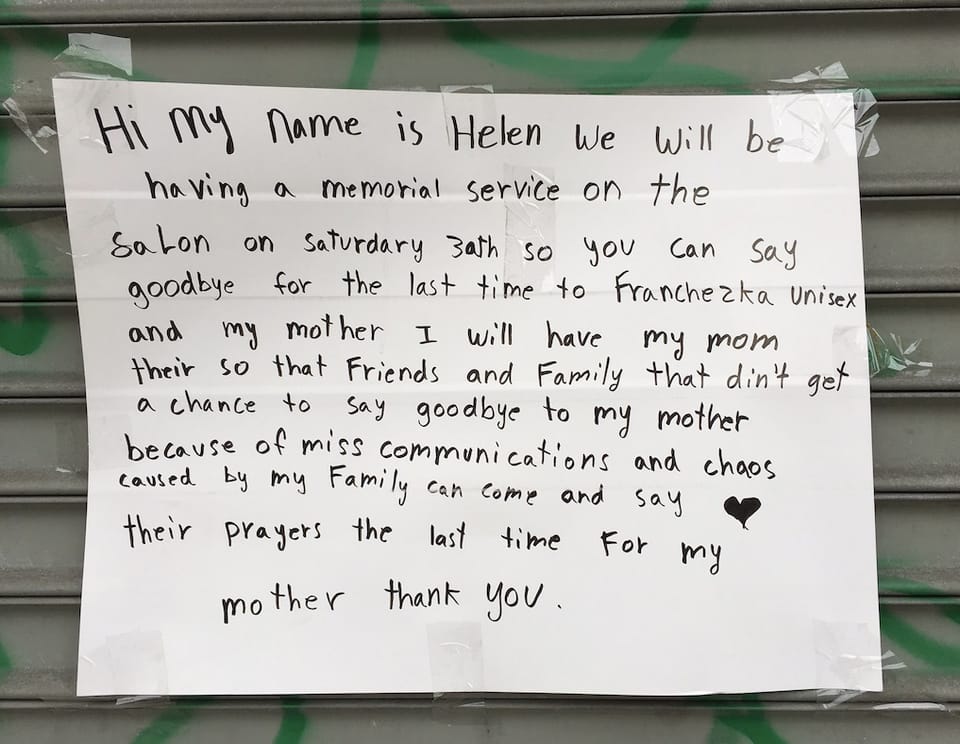 Hi my name is Helen We will be
having a memorial service on the
salon on saturdary 30th so you can say
goodbye for the last time to Franchezka Unisex
and my mother I will have my mom
their so that Friends and Family that din't get
a chance to say goodbye to my mother
because of miss communications and chaos
caused by my Family can come and say
their prayers the last time For my
mother thank you.